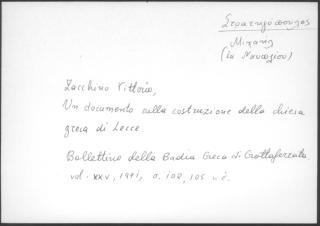 Στρατηγόπουλος
Μιχαήλ
(ἐκ Ναυπλίου)
Zacchino Vittorio,
Un documento sulla costruzione della chiesa
greca di Lecce.
Bollettino della Badia Greca di Grottaferrata.
vol. XXV, 1971, σ. 102, 105